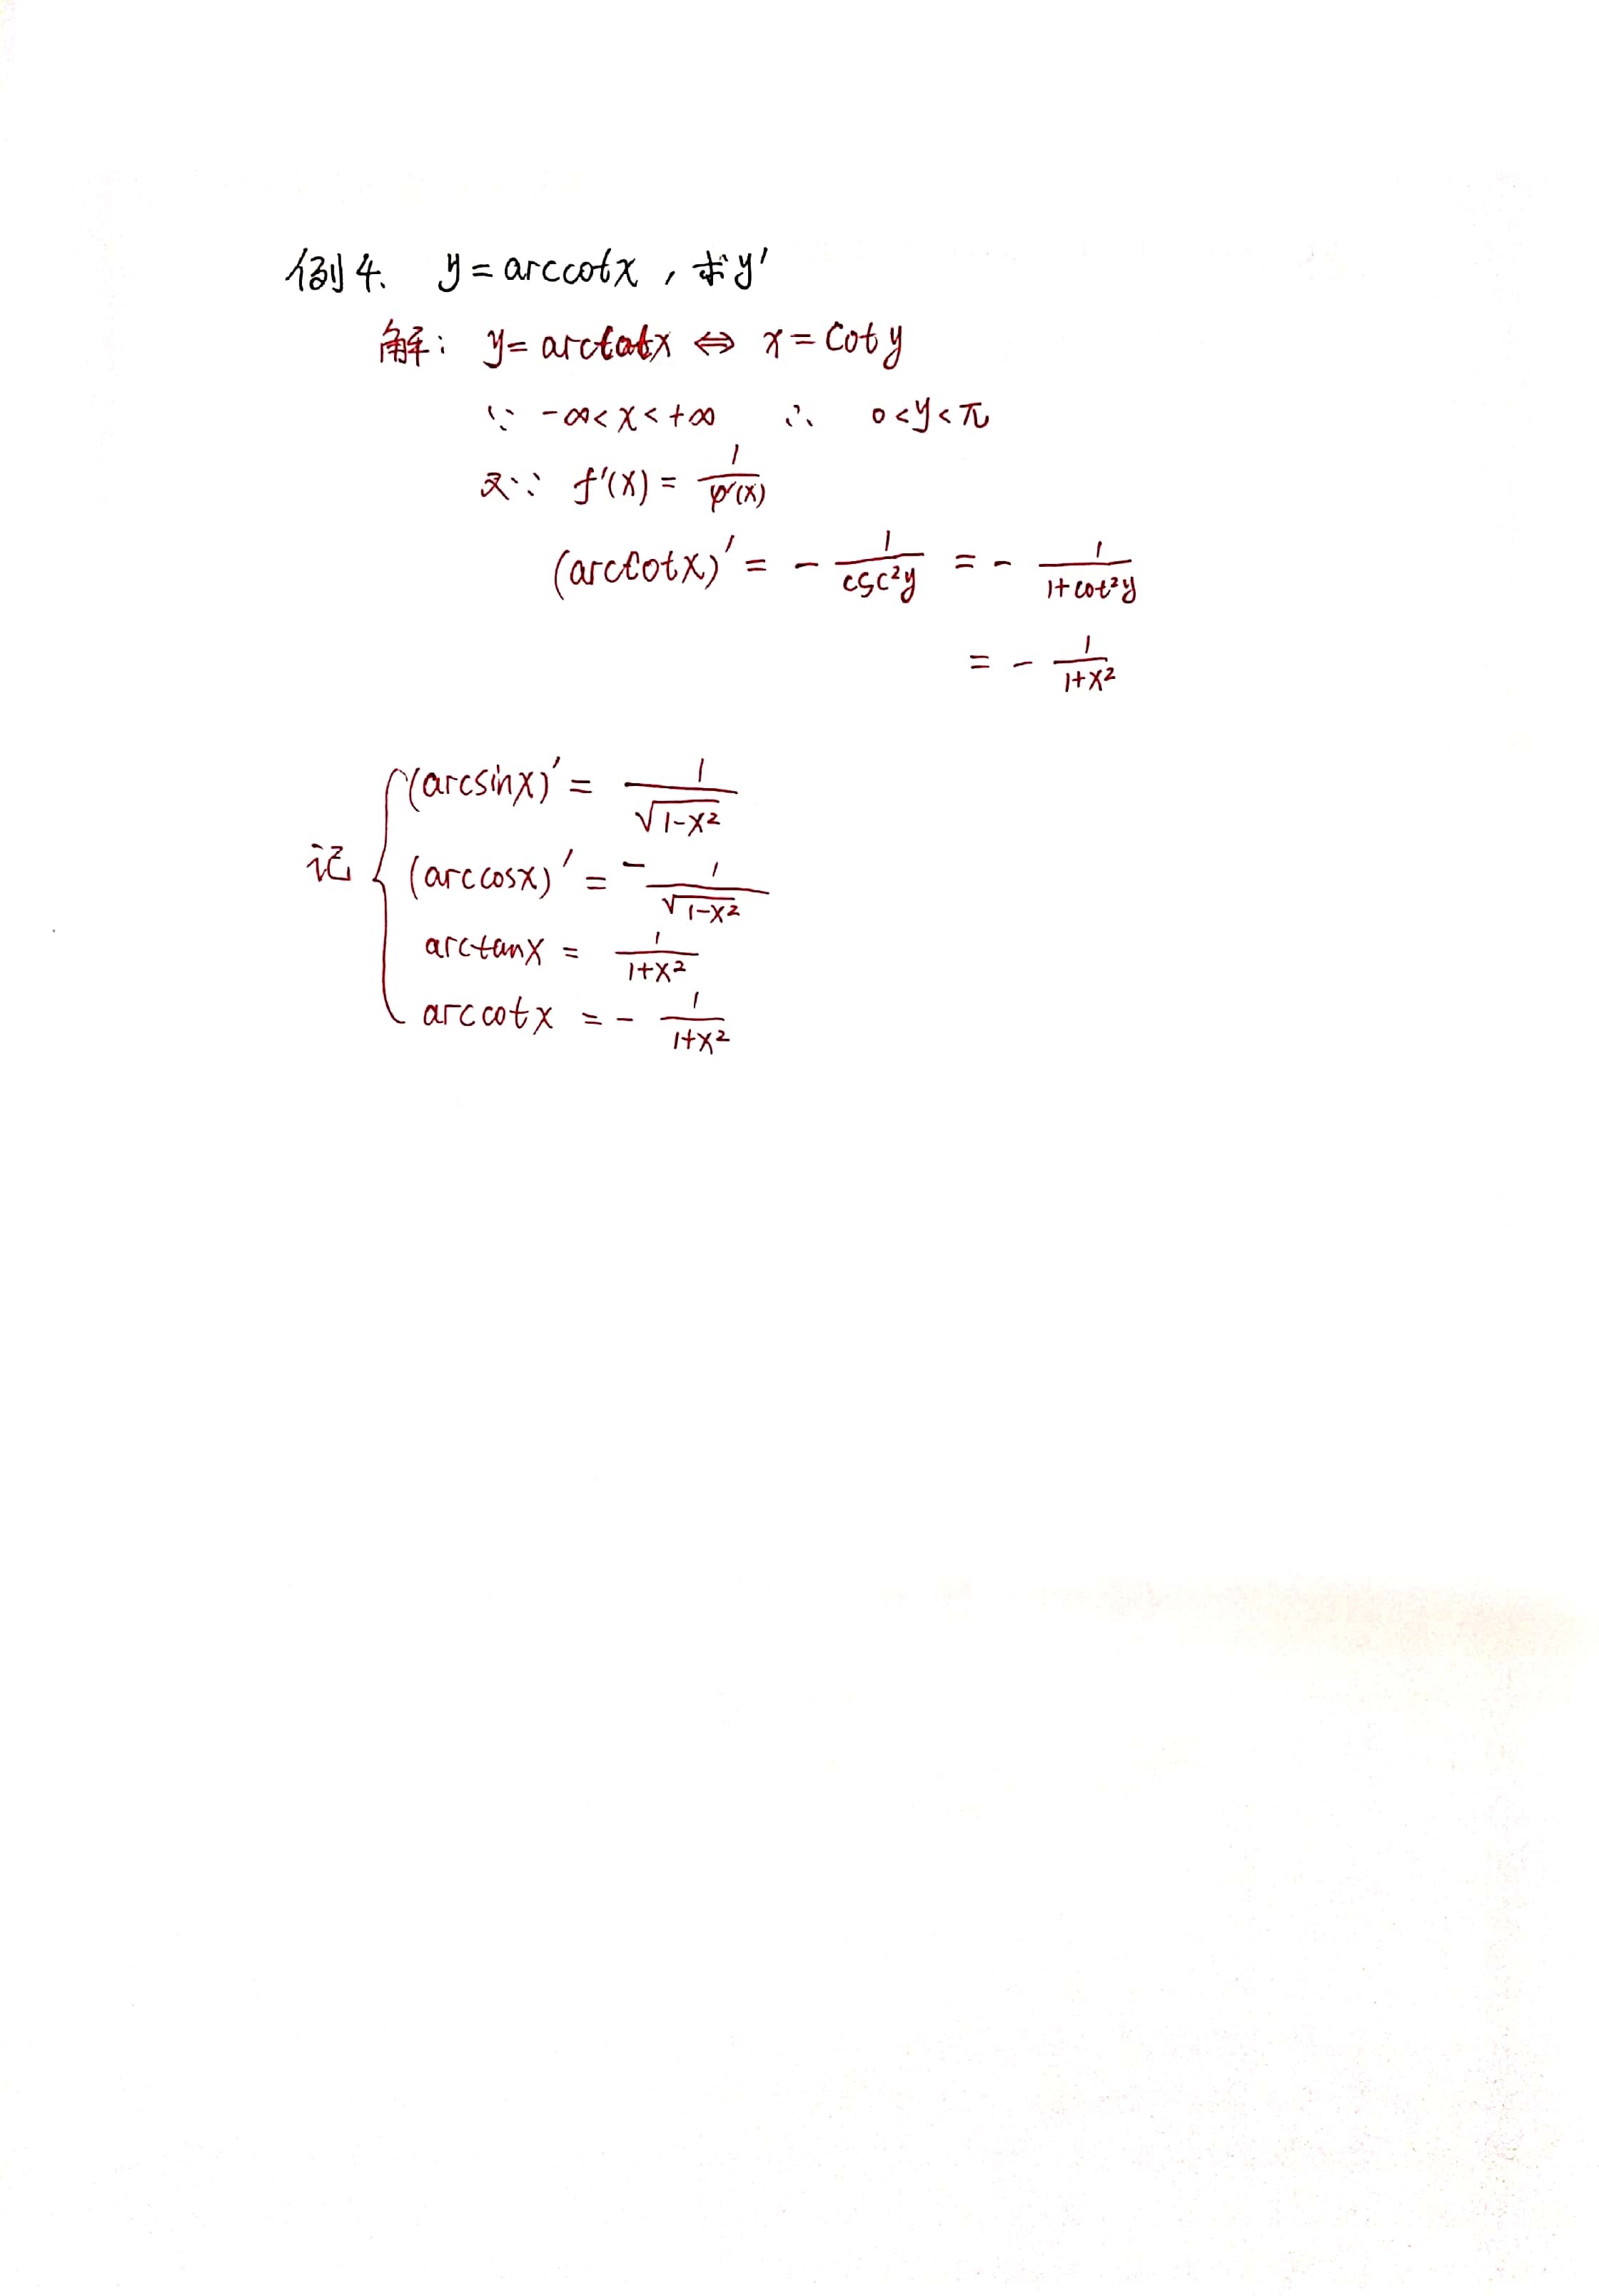 例4、 y=arccotx ，求y′
解： y=arccotx ⇔ x=coty
∵ -∞<x<+∞ ∴ 0<y<π
又∵ f′(x) = 1/φ′(x)
(arccotx)′ = - 1/csc²y = - 1/(1+cot²y)
= - 1/(1+x²)
记
(arcsinx)′ = 1/√(1-x²)
(arccosx)′ = - 1/√(1-x²)
arctanx = 1/(1+x²)
arccotx = - 1/(1+x²)